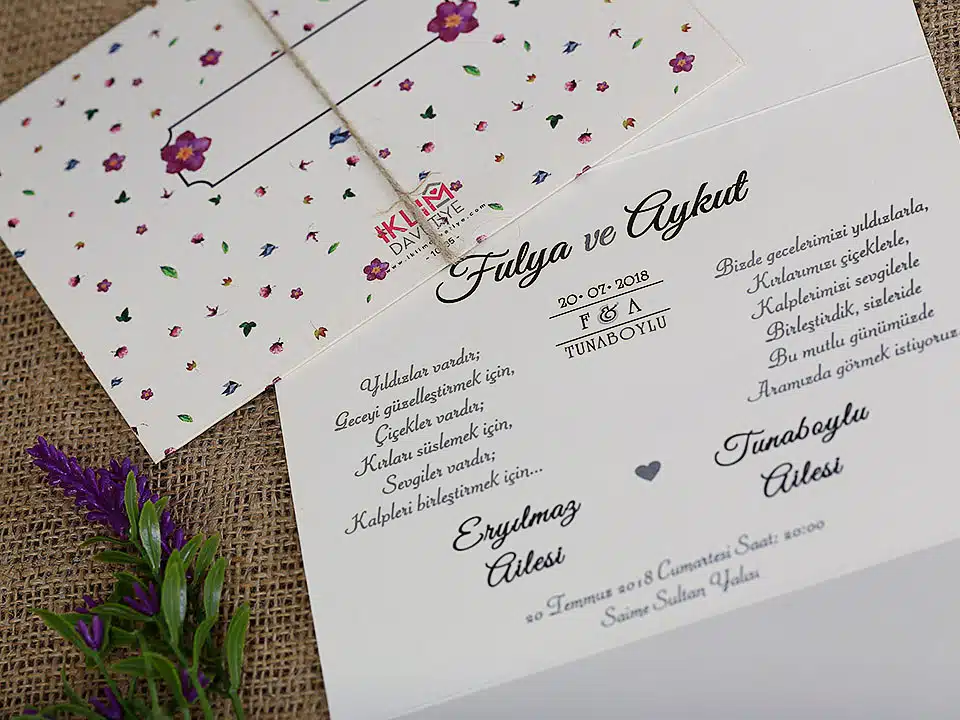 İKLİM
DAVETİYE
www.iklimdavetiye.com
Fulya ve Aykut
20 • 07 • 2018
F & A
TUNABOYLU
Yıldızlar vardır;
Geceyi güzelleştirmek için,
Çiçekler vardır;
Kırları süslemek için,
Sevgiler vardır;
Kalpleri birleştirmek için...
Bizde gecelerimizi yıldızlarla,
Kırlarımızı çiçeklerle,
Kalplerimizi sevgilerle
Birleştirdik, sizleride
Bu mutlu günümüzde
Aramızda görmek istiyoruz
Eryılmaz
Ailesi
Tunaboylu
Ailesi
20 Temmuz 2018 Cumartesi Saat: 20:00
Saime Sultan Yalısı